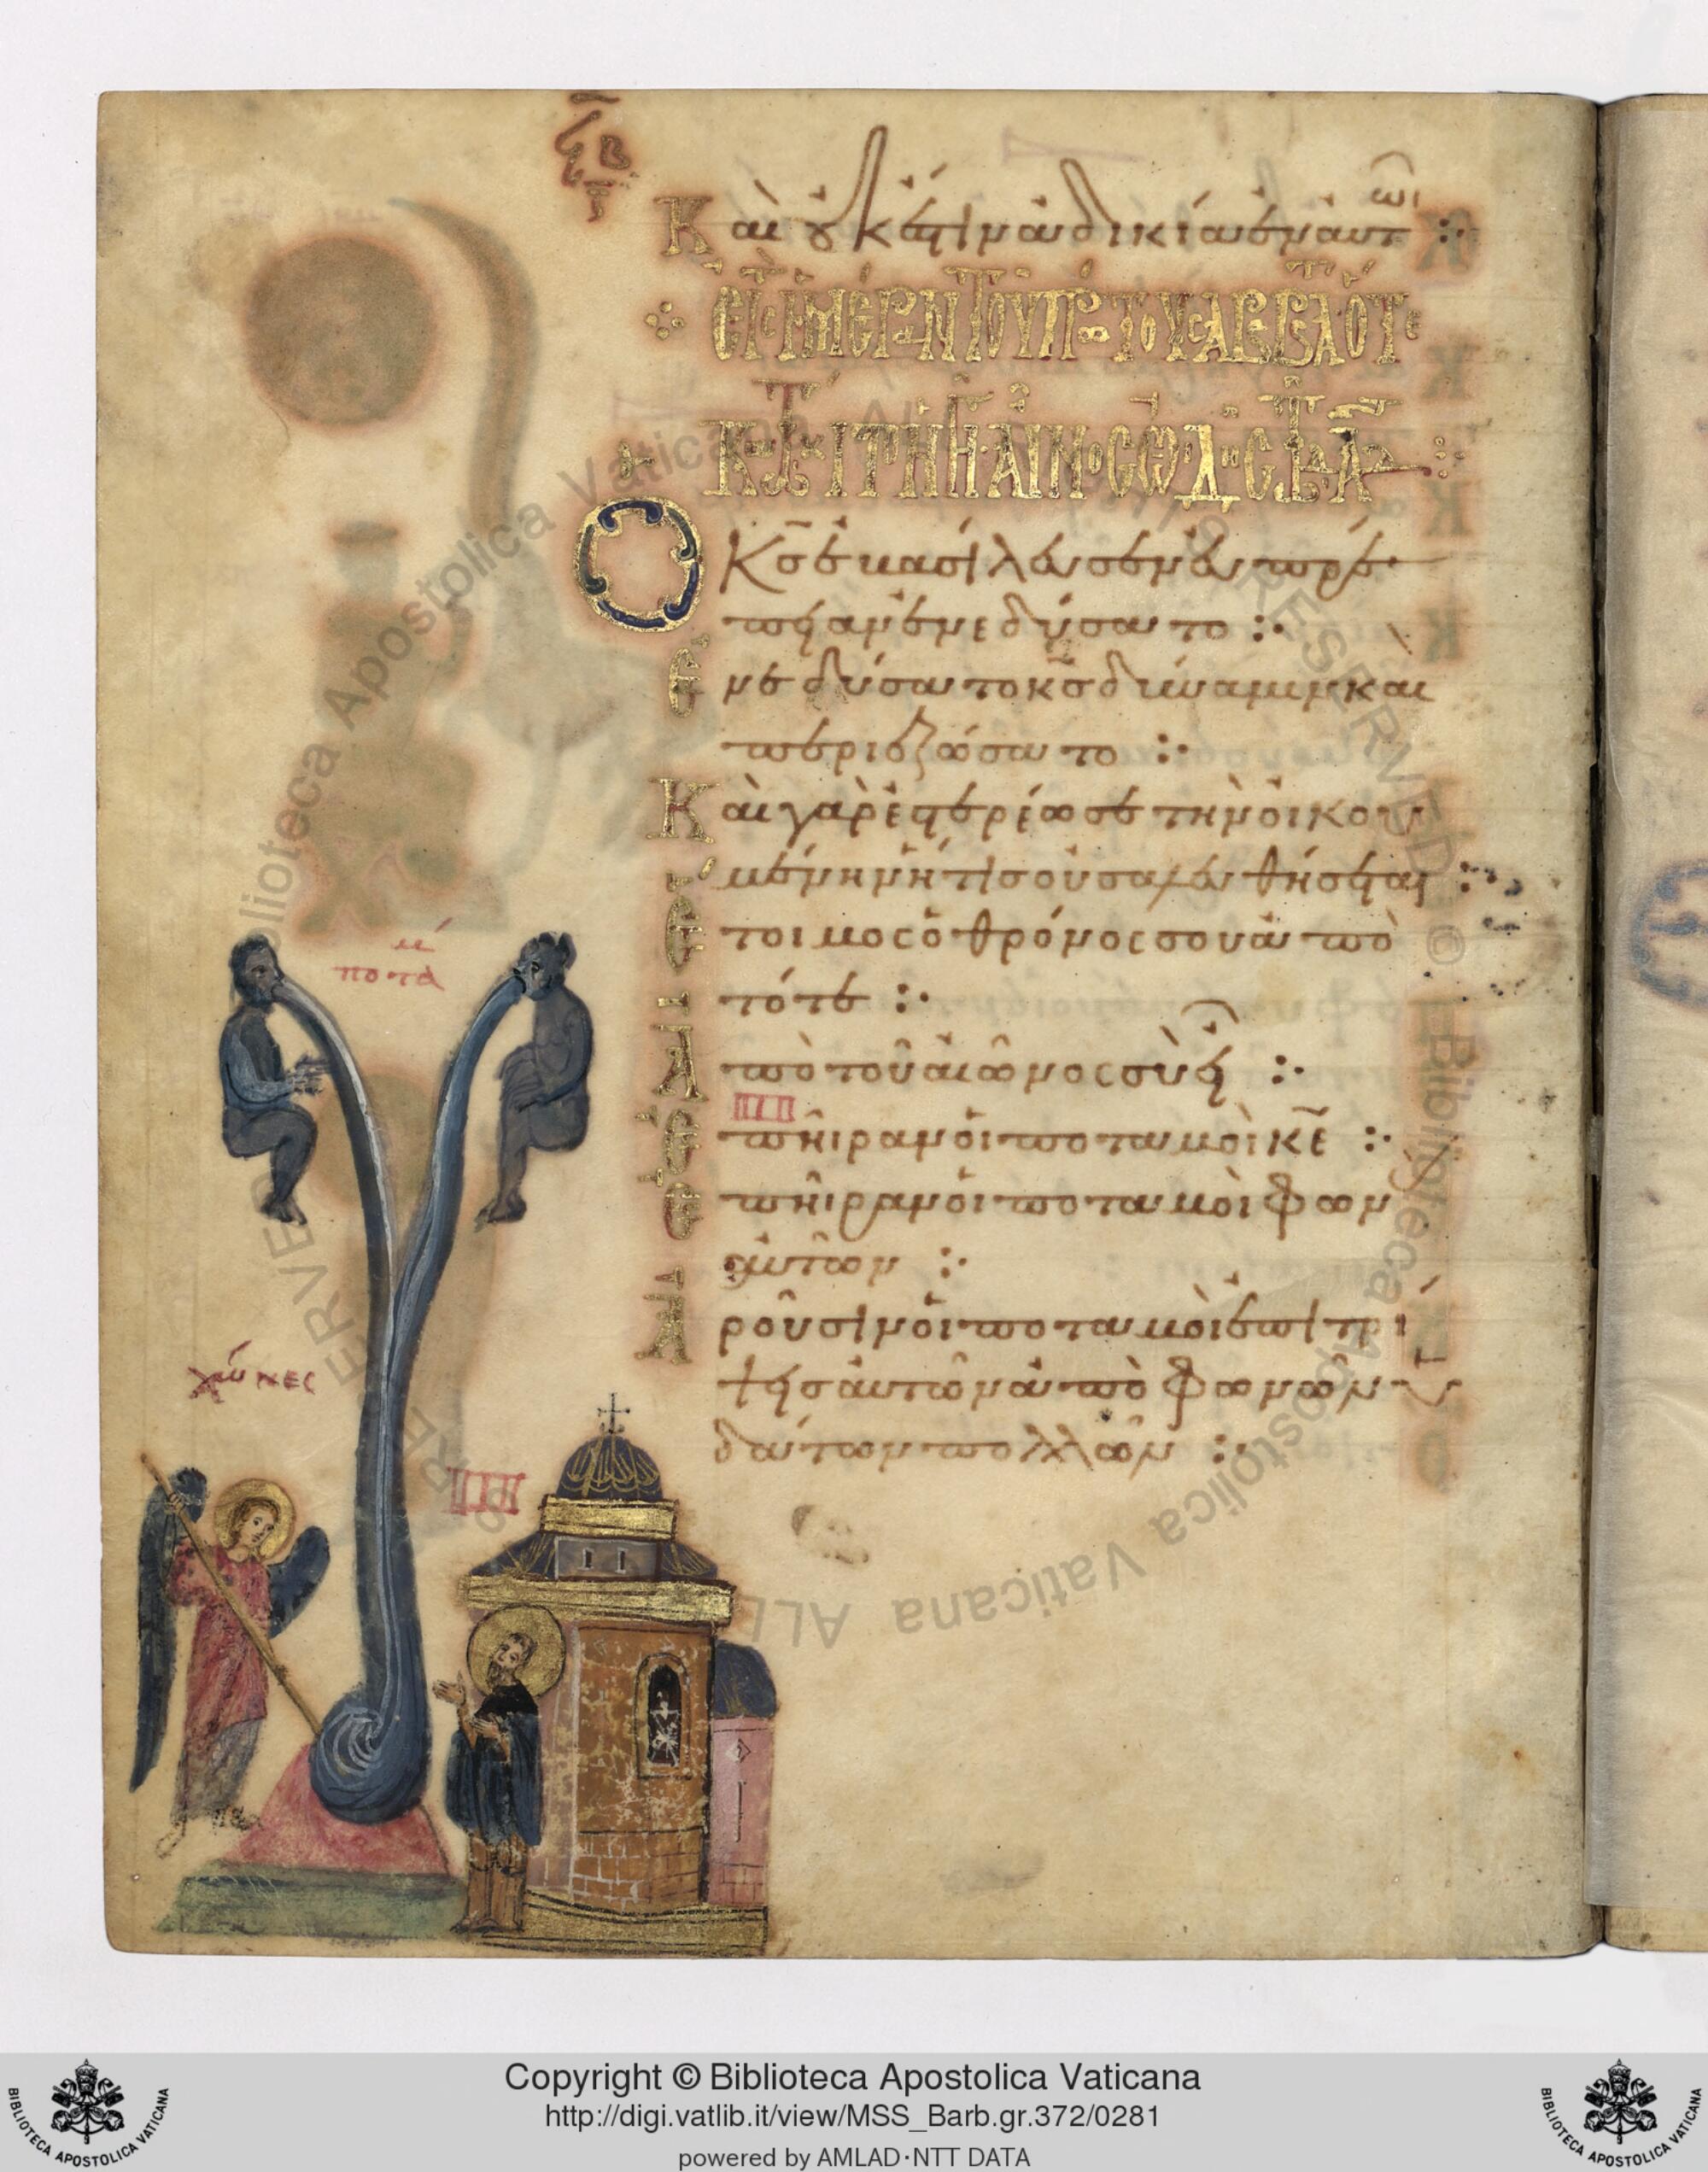 ϟβ
Καὶ οὐκ ἔστιν ἀδικία ἐν αὐτῶι :·
εἰς τὴν ἡμέραν τοῦ προσαββάτου ὅτε
κατῴκισται ἡ γῆ αἶνος ὠδῆς τῷ Δαδ
Ὁ κς ἐβασίλευσεν εὐπρέ
πειαν ἐνεδύσατο :·
Ἐνεδύσατο κς δύναμιν καὶ
περιεζώσατο :·
Καὶ γὰρ ἐστερέωσε τὴν οἰκου
μένην ἥτις οὐ σαλευθήσεται :·
Ἕτοιμος ὁ θρόνος σου ἀπὸ
τότε :·
Ἀπὸ τοῦ αἰῶνος σὺ εἶ :·
Ἐπῆραν οἱ ποταμοὶ κε :·
Ἐπῆραν οἱ ποταμοὶ φων
αὐτῶν :·
Ἀροῦσιν οἱ ποταμοὶ ἐπιτρί
ψεις αὐτῶν ἀπὸ φωνῶν ὑ
δάτων πολλῶν :·
ποτα
μοί
χῶνες
Copyright © Biblioteca Apostolica Vaticana
http://digi.vatlib.it/view/MSS_Barb.gr.372/0281
powered by AMLAD·NTT DATA
BIBLIOTECA APOSTOLICA VATICANA
BIBLIOTECA APOSTOLICA VATICANA